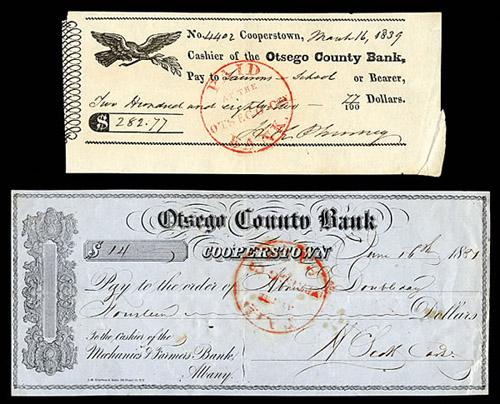 No. 4402 Cooperstown, March 16, 1839
Cashier of the Otsego County Bank,
Pay to School or Bearer,
Two Hundred and eighty two 77/100 Dollars.
$ 282.77
PAID
Otsego County Bank
$ 14
COOPERSTOWN June 16th
Pay to the order of Doubleday
Fourteen Dollars
To the Cashier of the
Mechanics & Farmers Bank, Scott Cash.
Albany.